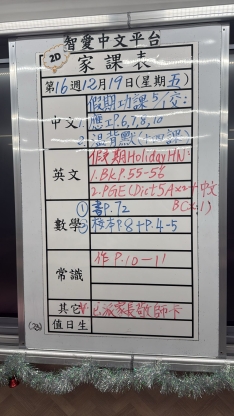 智愛中文平台
2D
家課表
第16週12月19日(星期五)
假期功課 5/1交:
中文 1. 應工P.6,7,8,10
2. 溫背默(十四課)
英文 假期Holiday HW:
1. BK P.55-56
2. PGE (Dict 5A x2 + 中文
BC x1)
數學 ① 書P.72
② 校本P.8 + P.4-5
常識 作P.10-11
其它 已派家長敬師卡
值日生